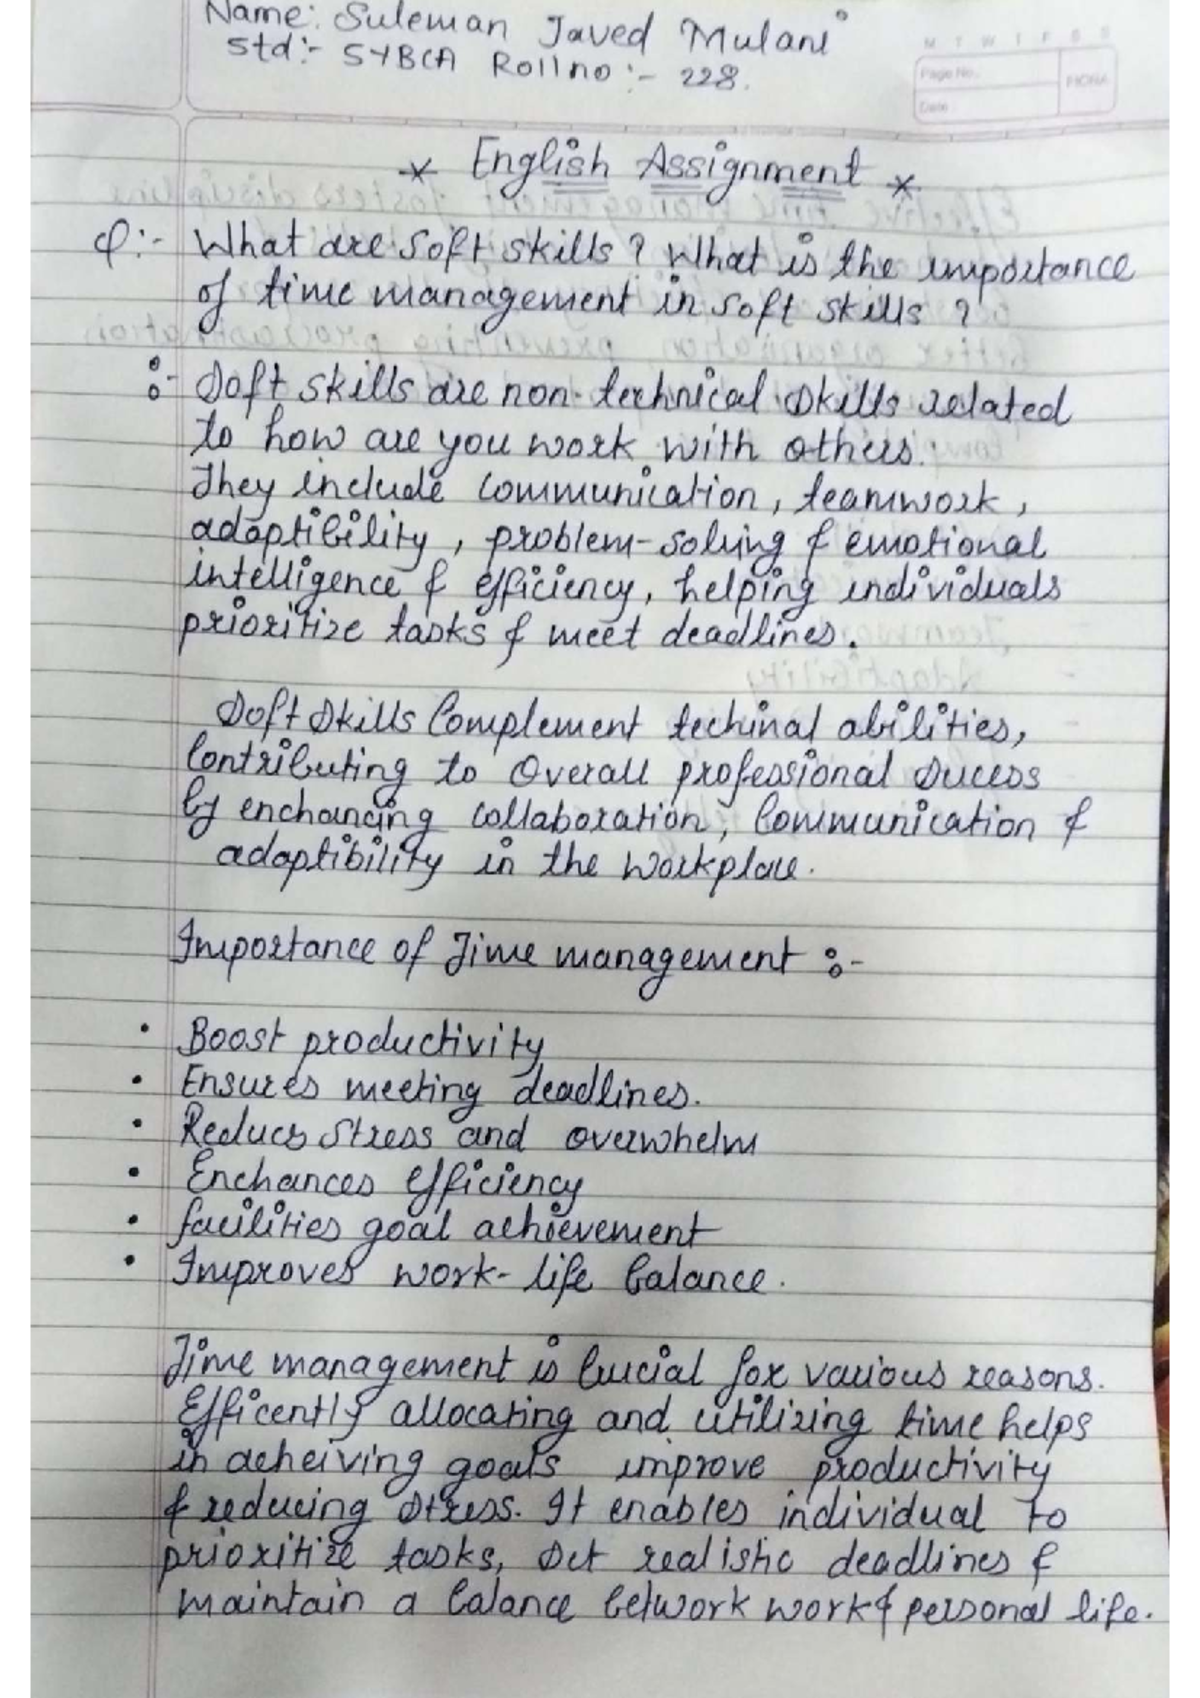 Name: Suleman Javed Mulani
Std:- SYBCA Rollno:- 228.
M T W T F S S
Page No.
Date
* English Assignment *
Q:- What are soft skills? What is the importance
of time management in soft skills?
:- Soft skills are non-technical skills related
to how are you work with others.
They include communication, teamwork,
adaptibility, problem-solving & emotional
intelligence & efficiency, helping individuals
prioritize tasks & meet deadlines.
Soft skills Complement techinal abilities,
Contributing to Overall professional sucess
by enchancing collaboration, Communication &
adaptibility in the workplace.
Importance of Time management :-
• Boost productivity
• Ensures meeting deadlines.
• Reduces stress and overwhelm
• Enchances efficiency
• facilities goal achievement
• Improves work-life balance.
Time management is Crucial for various reasons.
Efficently allocating and utilizing time helps
in acheiving goals improve productivity
& reducing stress. It enables individual to
prioritize tasks, set realistic deadlines &
maintain a balance betwork work & personal life.